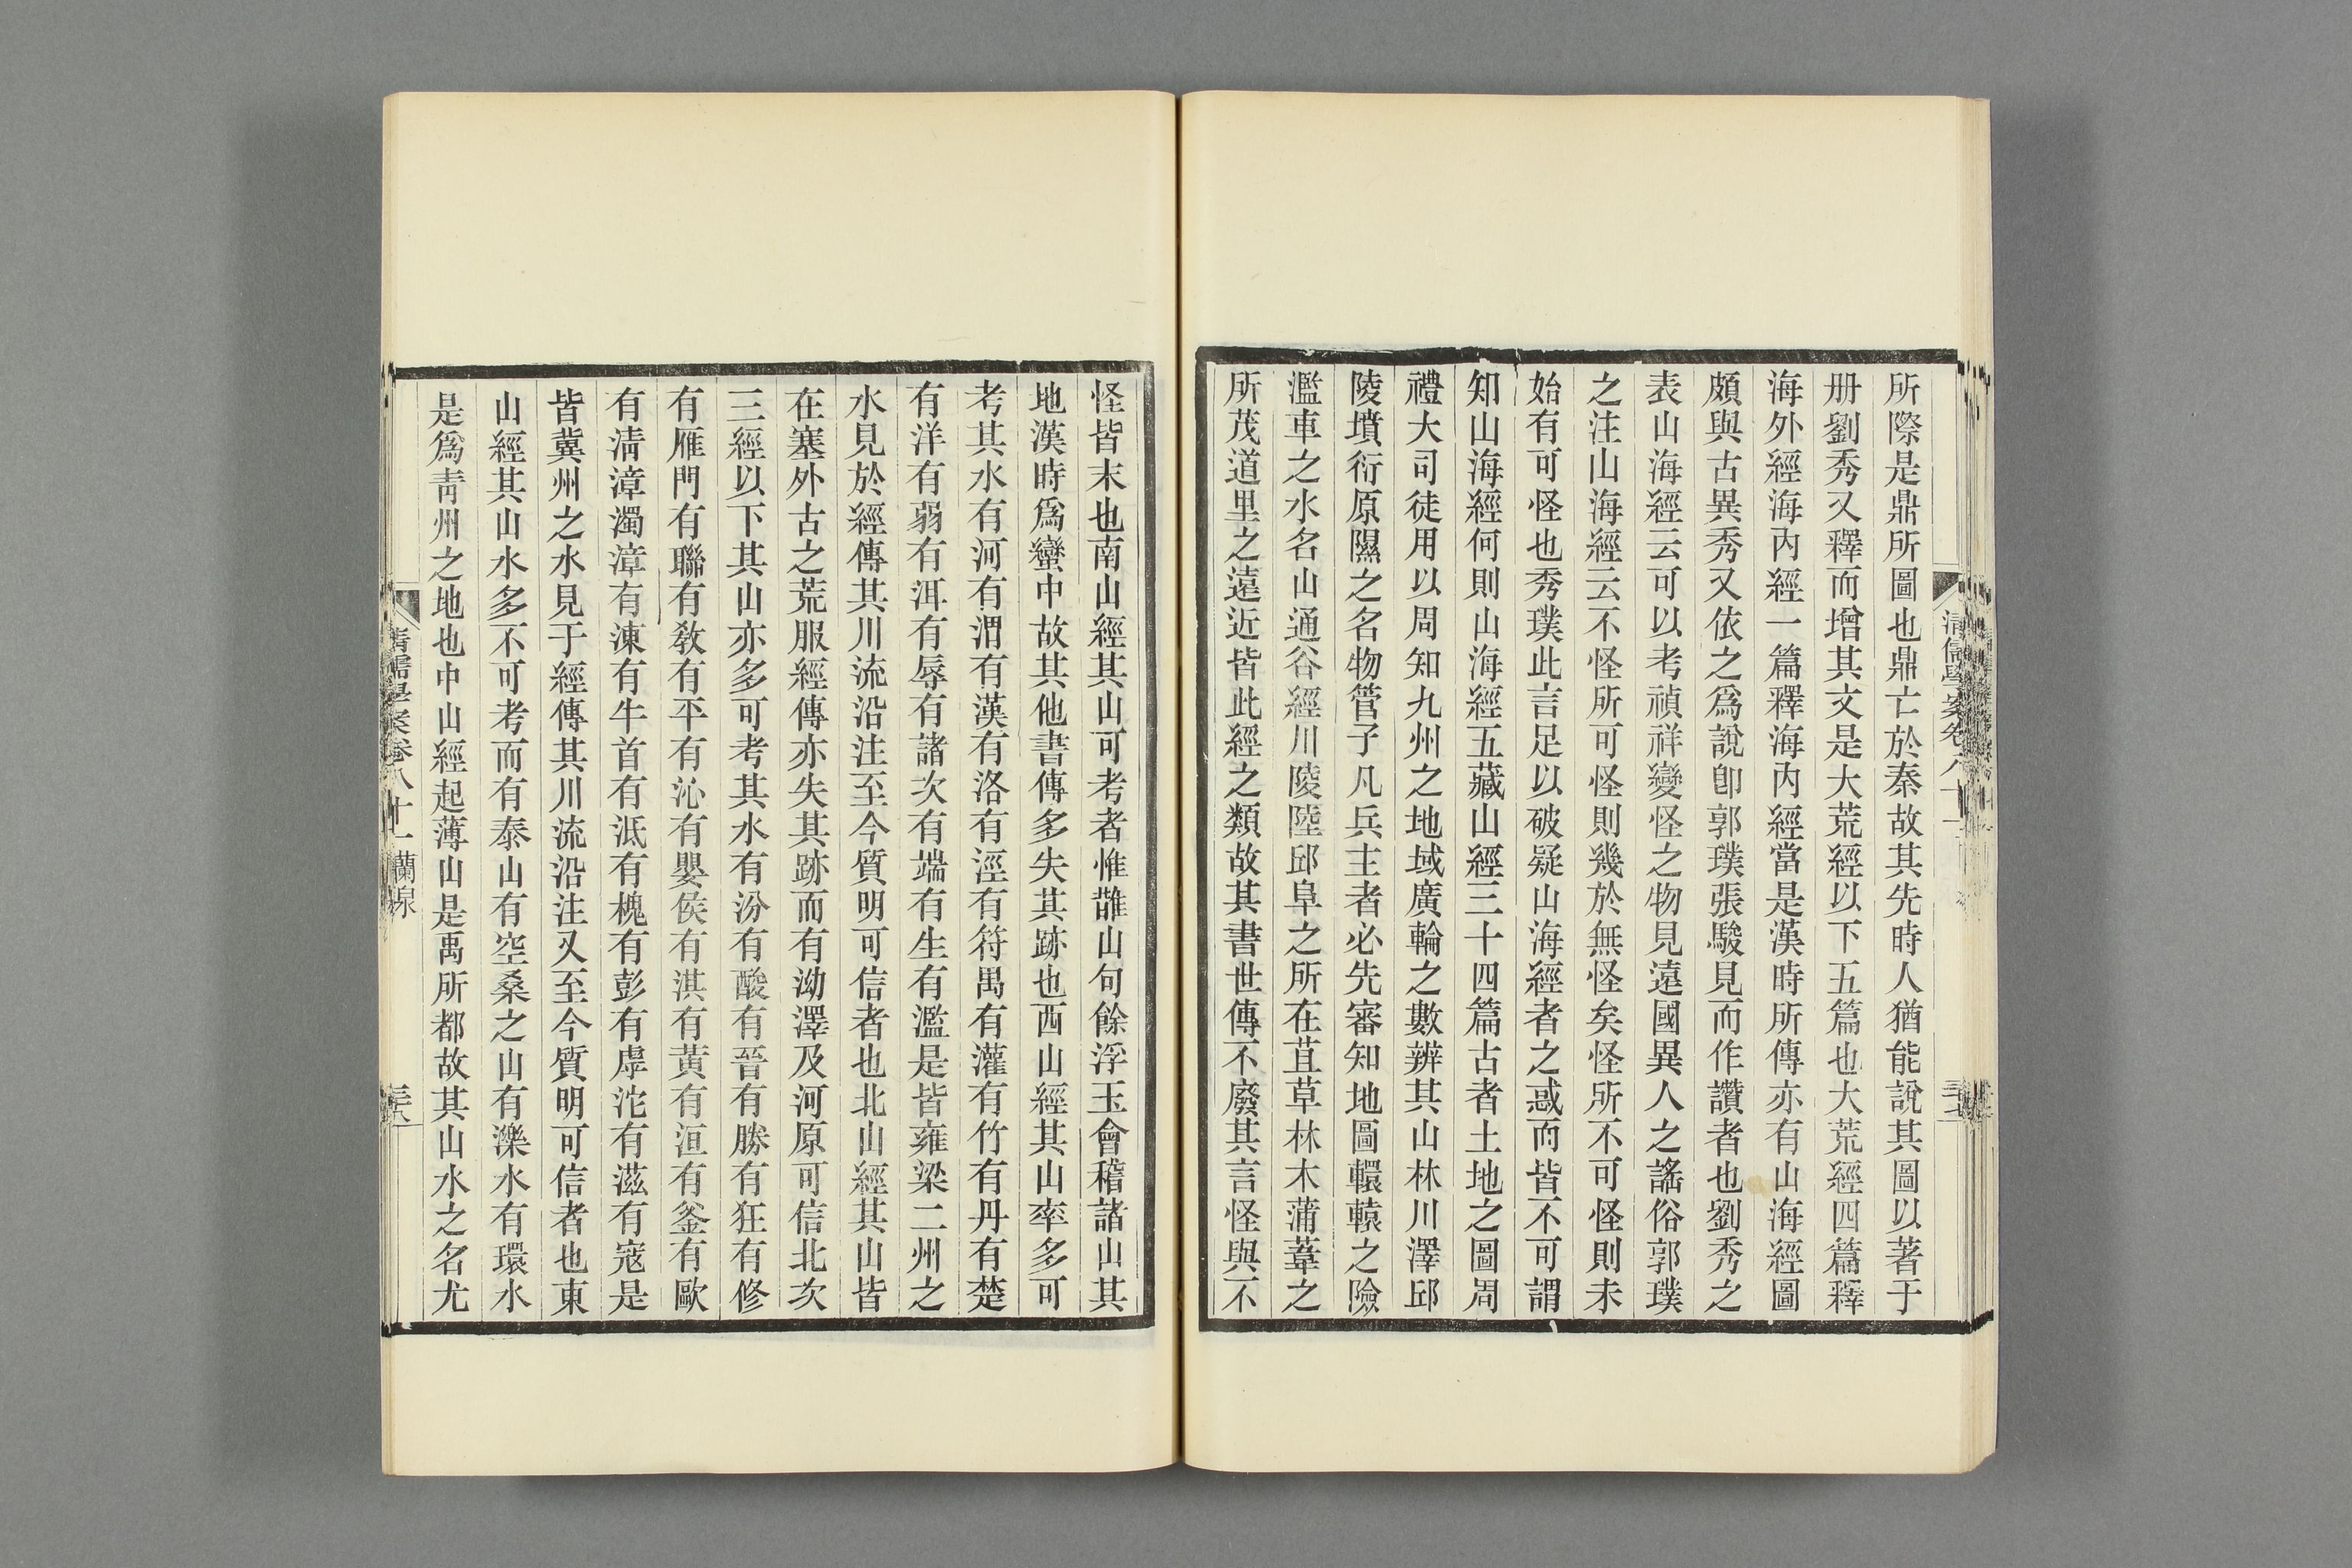 所際是鼎所圖也鼎亡於秦故其先時人猶能說其圖以著于
册劉秀又釋而增其文是大荒經以下五篇也大荒經四篇釋
海外經海內經一篇釋海內經當是漢時所傳亦有山海經圖
頗與古異秀又依之爲說卽郭璞張駿見而作讚者也劉秀之
表山海經云可以考禎祥變怪之物見遠國異人之謠俗郭璞
之注山海經云不怪所可怪則幾於無怪矣怪所不可怪則未
始有可怪也秀璞此言足以破疑山海經者之惑而皆不可謂
知山海經何則山海經五藏山經三十四篇古者土地之圖周
禮大司徒用以周知九州之地域廣輪之數辨其山林川澤邱
陵墳衍原隰之名物管子凡兵主者必先審知地圖轘轅之險
濫車之水名山通谷經川陵陸邱阜之所在苴草林木蒲葦之
所茂道里之遠近皆此經之類故其書世傳不廢其言怪與不
怪皆末也南山經其山可考者惟䧿山句餘浮玉會稽諸山其
地漢時爲蠻中故其他書傳多失其跡也西山經其山率多可
考其水有河有渭有漢有洛有涇有符禺有灌有竹有丹有楚
有洋有弱有洱有辱有諸次有端有生有濫是皆雍梁二州之
水見於經傳其川流沿注至今質明可信者也北山經其山皆
在塞外古之荒服經傳亦失其跡而有泑澤及河原可信北次
三經以下其山亦多可考其水有汾有酸有晉有勝有狂有修
有雁門有聯有敎有平有沁有嬰侯有淇有黃有洹有釜有歐
有清漳濁漳有涷有牛首有泜有槐有彭有虖沱有滋有寇是
皆冀州之水見于經傳其川流沿注又至今質明可信者也東
山經其山水多不可考而有泰山有空桑之山有濼水有環水
是爲靑州之地也中山經起薄山是禹所都故其山水之名尤
清儒學案卷八十一 蘭泉
三十八